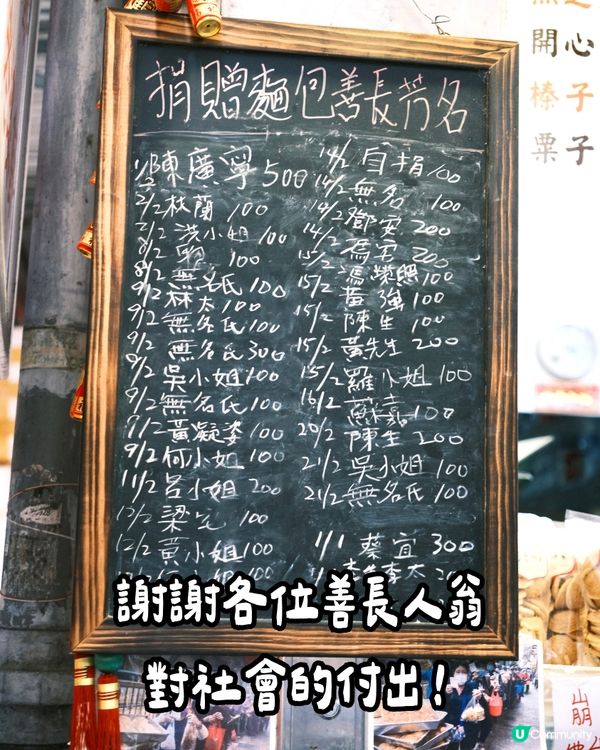 捐贈麵包善長芳名
1/2 陳廣寧 500
2/2 林蘭 100
7/2 洗小姐 100
8/2 明 100
8/2 無名氏 100
9/2 林太 100
9/2 無名氏 100
9/2 無名氏 300
9/2 吳小姐 100
9/2 無名氏 100
9/2 黃凝姿 100
9/2 何小姐 100
11/2 呂小姐 200
12/2 梁 100
12/2 黃小姐 100
14/2 自捐 100
14/2 無名 100
14/2 鄧安 200
14/2 馮安 200
15/2 馮榮照 100
15/2 黃強 100
15/2 陳生 100
15/2 黃先生 200
15/2 羅小姐 100
16/2 蘇嘉 100
20/2 陳生 200
21/2 吳小姐 100
21/2 無名氏 100
1/1 蔡宜 300
李太
謝謝各位善長人翁
對社會的付出！
開心
榛子
栗子
山崩
U Community